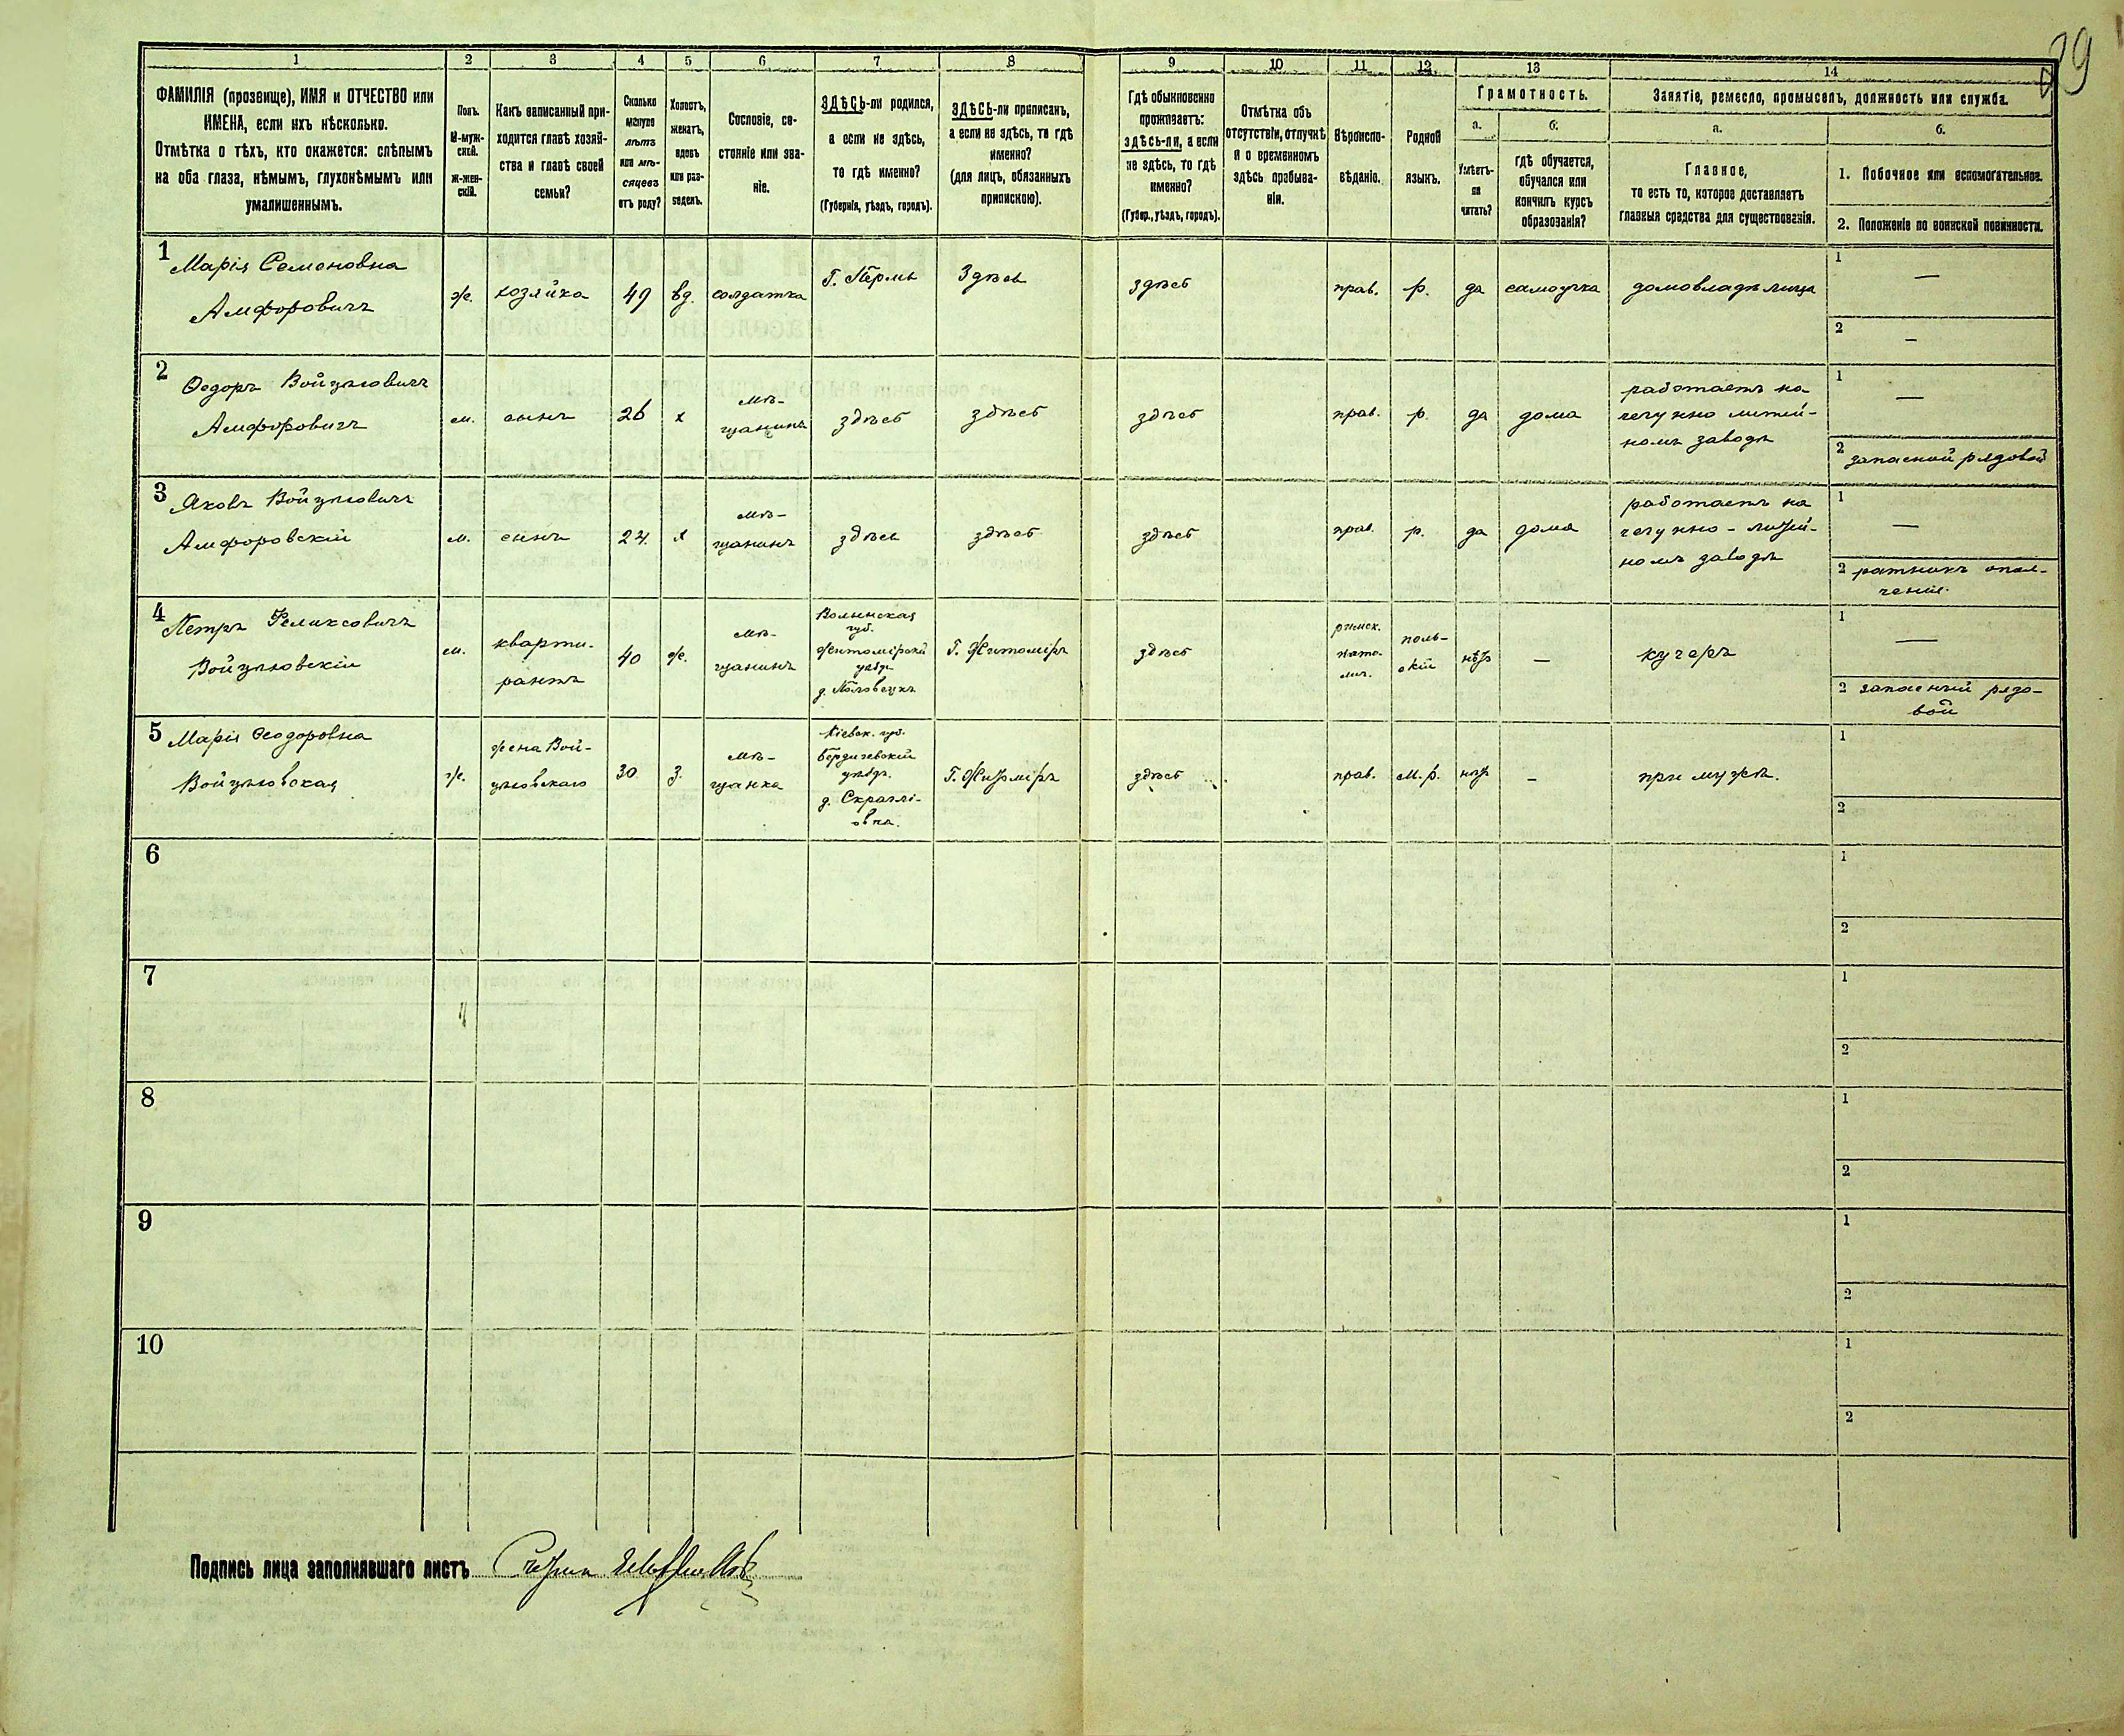 29
1 2 3 4 5 6 7 8 9 10 11 12 13 14
ФАМИЛІЯ (прозвище), ИМЯ и ОТЧЕСТВО или
ИМЕНА, если ихъ нѣсколько.
Отмѣтка о тѣхъ, кто окажется: слѣпымъ
на оба глаза, нѣмымъ, глухонѣмымъ или
умалишеннымъ.
Полъ.
М-муж-
ской.
Ж-жен-
скій.
Какъ записанный при-
ходится главѣ хозяй-
ства и главѣ своей
семьи?
Сколько
минуло
лѣтъ
или мѣ-
сяцевъ
отъ роду?
Холостъ,
женатъ,
вдовъ
или раз-
веденъ.
Сословіе, со-
стояніе или зва-
ніе.
ЗДѢСЬ-ли родился,
а если не здѣсь,
то гдѣ именно?
(Губернія, уѣздъ, городъ).
ЗДѢСЬ-ли приписанъ,
а если не здѣсь, то гдѣ
именно?
(для лицъ, обязанныхъ
припискою).
Гдѣ обыкновенно
проживаетъ:
здѣсь-ли, а если
не здѣсь, то гдѣ
именно?
(Губер., уѣздъ, городъ).
Отмѣтка объ
отсутствіи, отлучкѣ
и о временномъ
здѣсь пребыва-
ніи.
Вѣроиспо-
вѣданіе.
Родной
языкъ.
Грамотность.
а.
б.
Умѣетъ-
ли
читать?
гдѣ обучается,
обучался или
кончилъ курсъ
образованія?
Занятіе, ремесло, промыселъ, должность или служба.
а.
б.
Главное,
то есть то, которое доставляетъ
главныя средства для существованія.
1. Побочное или вспомогательное.
2. Положеніе по воинской повинности.
1
Марія Семеновна
Амфоровичъ
ж.
хозяйка
49
вд.
солдатка
Г. Пермь
Здѣсь
здѣсь
прав.
р.
да
самоучка
домовладѣлица
1 —
2 —
2
Ѳедоръ Войцѣховичъ
Амфоровичъ
м.
сынъ
26
х
мѣ-
щанинъ
здѣсь
здѣсь
здѣсь
прав.
р.
да
дома
работаетъ на
чугунно литей-
номъ заводѣ
1 —
2 запасной рядовой
3
Яковъ Войцѣховичъ
Амфоровскій
м.
сынъ
24
х
мѣ-
щанинъ
здѣсь
здѣсь
здѣсь
прав.
р.
да
дома
работаетъ на
чугунно - литей-
номъ заводѣ
1 —
2 ратникъ опол-
ченія.
4
Петръ Феликсовичъ
Войцѣховскій
м.
кварти-
рантъ
40
ж.
мѣ-
щанинъ
Волынская
губ.
Житомірскій
уѣздъ
Г. Житоміръ
здѣсь
римск.
като-
лич.
поль-
скій
нѣтъ
—
кучеръ
1 —
2 запасный рядо-
вой
5
Марія Ѳеодоровна
Войцѣховская
ж.
жена Вой-
цѣховскаго
30
з.
мѣ-
щанка
Кіевск. губ.
Бердичевскій
уѣздъ.
Г. Житоміръ
здѣсь
прав.
м.р.
нѣтъ
–
при мужѣ.
1
2
6
1
2
7
1
2
8
1
2
9
1
2
10
1
2
Подпись лица заполнявшаго листъ